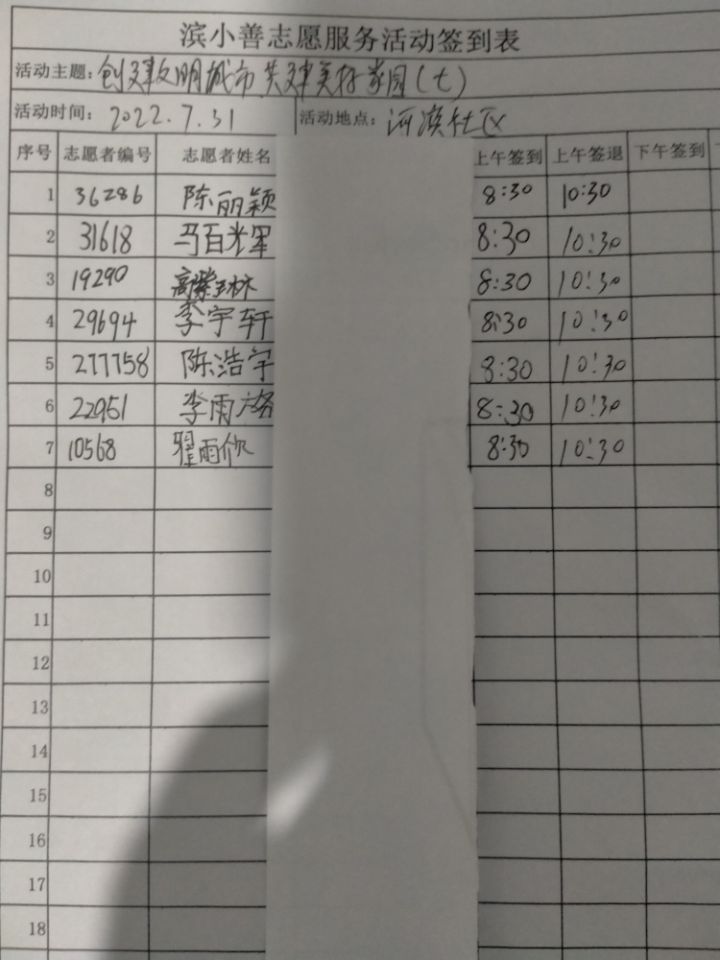 滨小善志愿服务活动签到表
活动主题：创建文明城市 共建美好家园（七）
活动时间：2022.7.31 活动地点：河滨社区
序号 志愿者编号 志愿者姓名 上午签到 上午签退 下午签到
1 36286 陈丽颖 8:30 10:30
2 31618 马百 8:30 10:30
3 19290 高紫琳 8:30 10:30
4 29694 李宇轩 8:30 10:30
5 277758 陈浩宇 8:30 10:30
6 22951 李雨 8:30 10:30
7 10568 翟雨欣 8:30 10:30
8
9
10
11
12
13
14
15
16
17
18